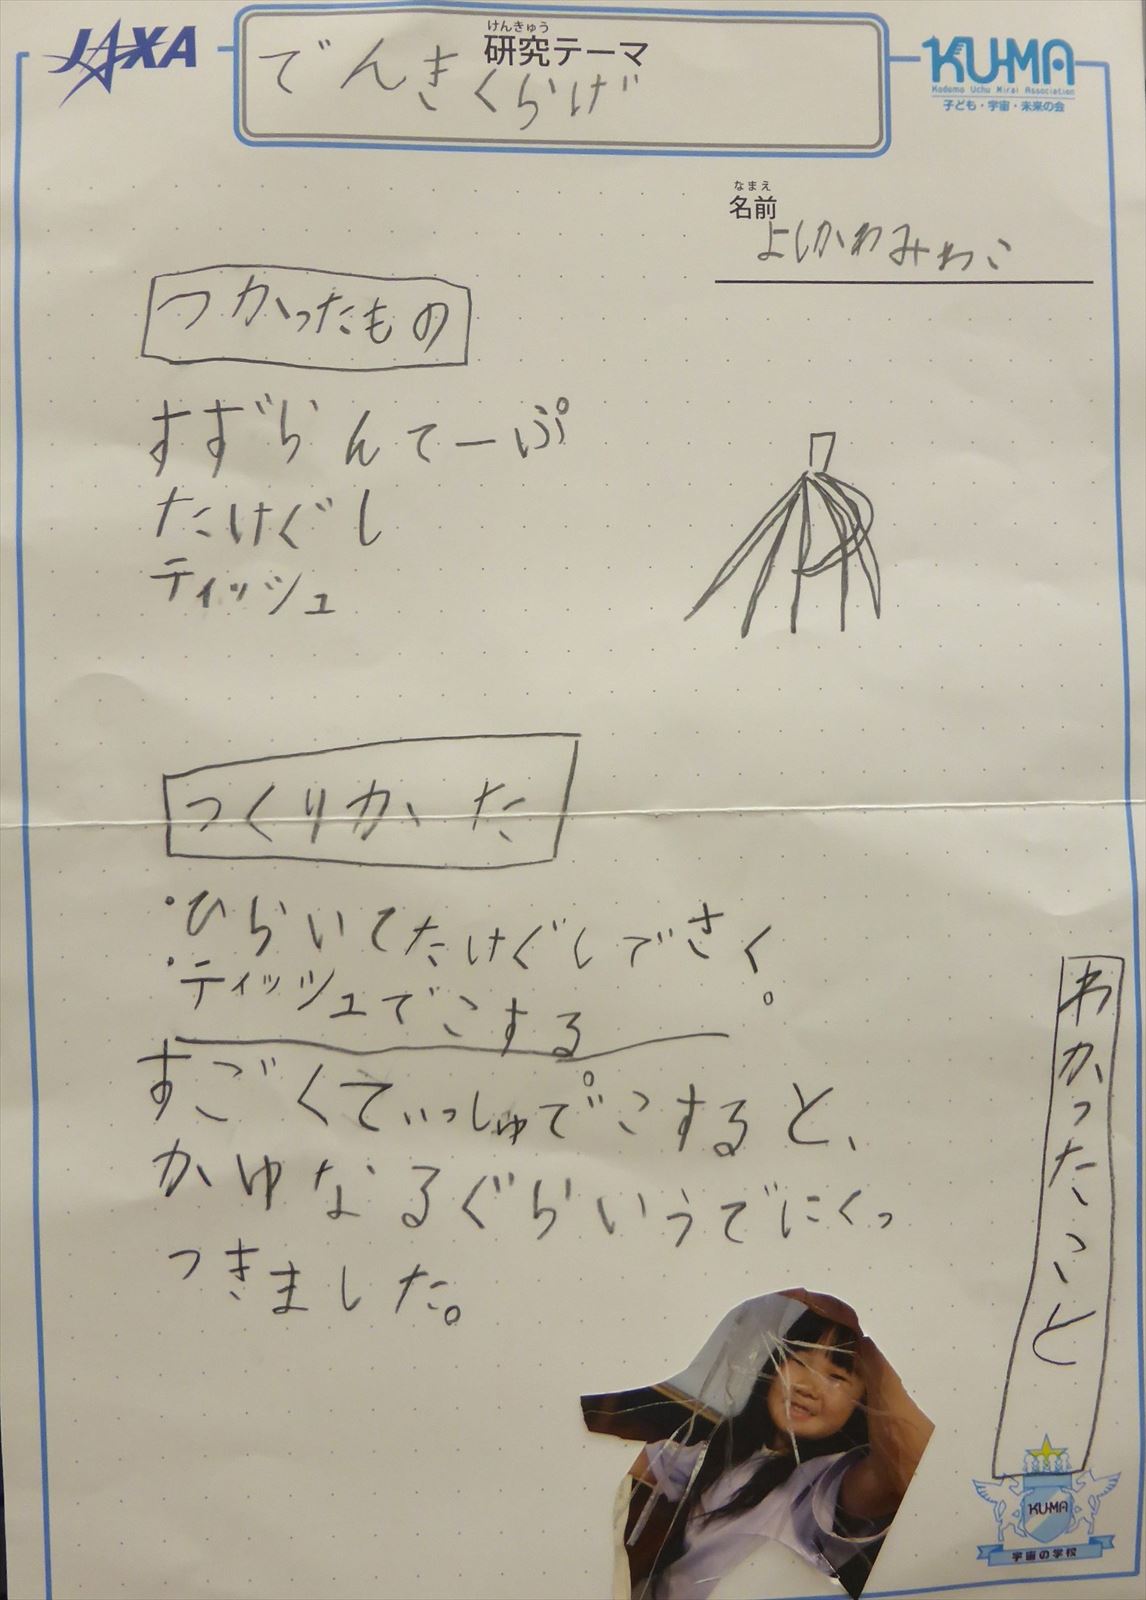 JAXA
けんきゅう
研究テーマ
でんきくらげ
KU-MA
Kodomo Uchu Mirai Association
子ども・宇宙・未来の会
なまえ
名前
よしかわみわこ
つかったもの
すずらんてーぷ
たけぐし
ティッシュ
つくりかた
・ひらいてたけぐしでさく。
・ティッシュでこする。
わかったこと
すごくてぃっしゅでこすると、
かゆなるぐらいうでにくっ
つきました。
KU-MA
宇宙の学校